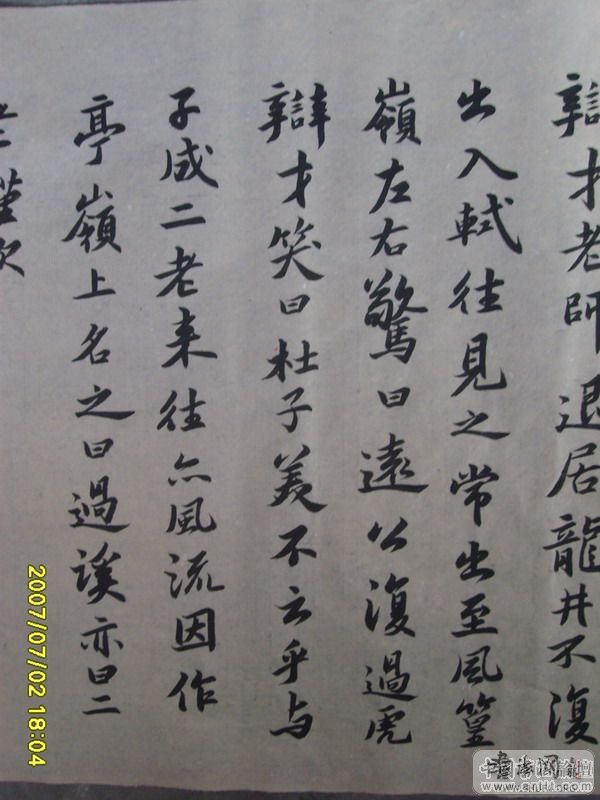 辯才老師退居龍井不復
出入軾往見之常出至風篁
嶺左右驚曰遠公復過虎
辯才笑曰杜子美不云乎与
子成二老来往亦風流因作
亭嶺上名之曰過溪亦曰二
老謹次
2007/07/02 18:04